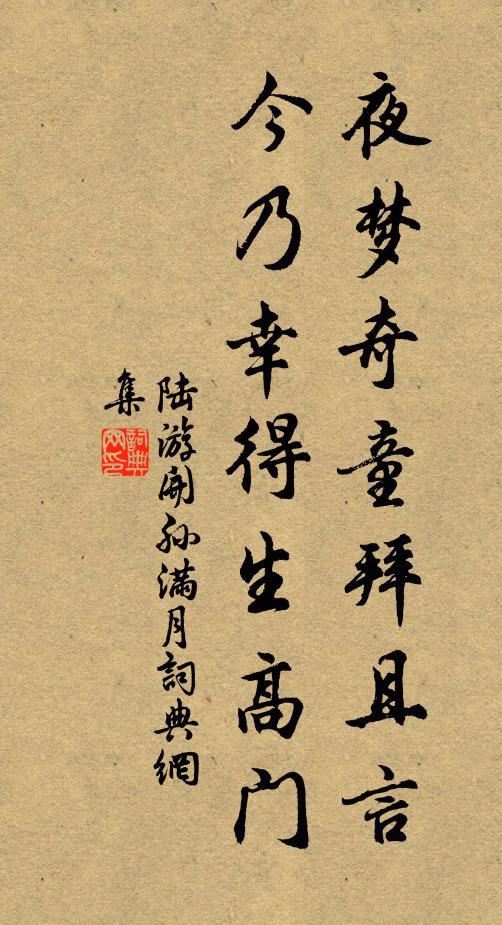 夜梦奇童拜且言
今乃幸得生高门
陆游開孙满月詞典網
集
詞典網印